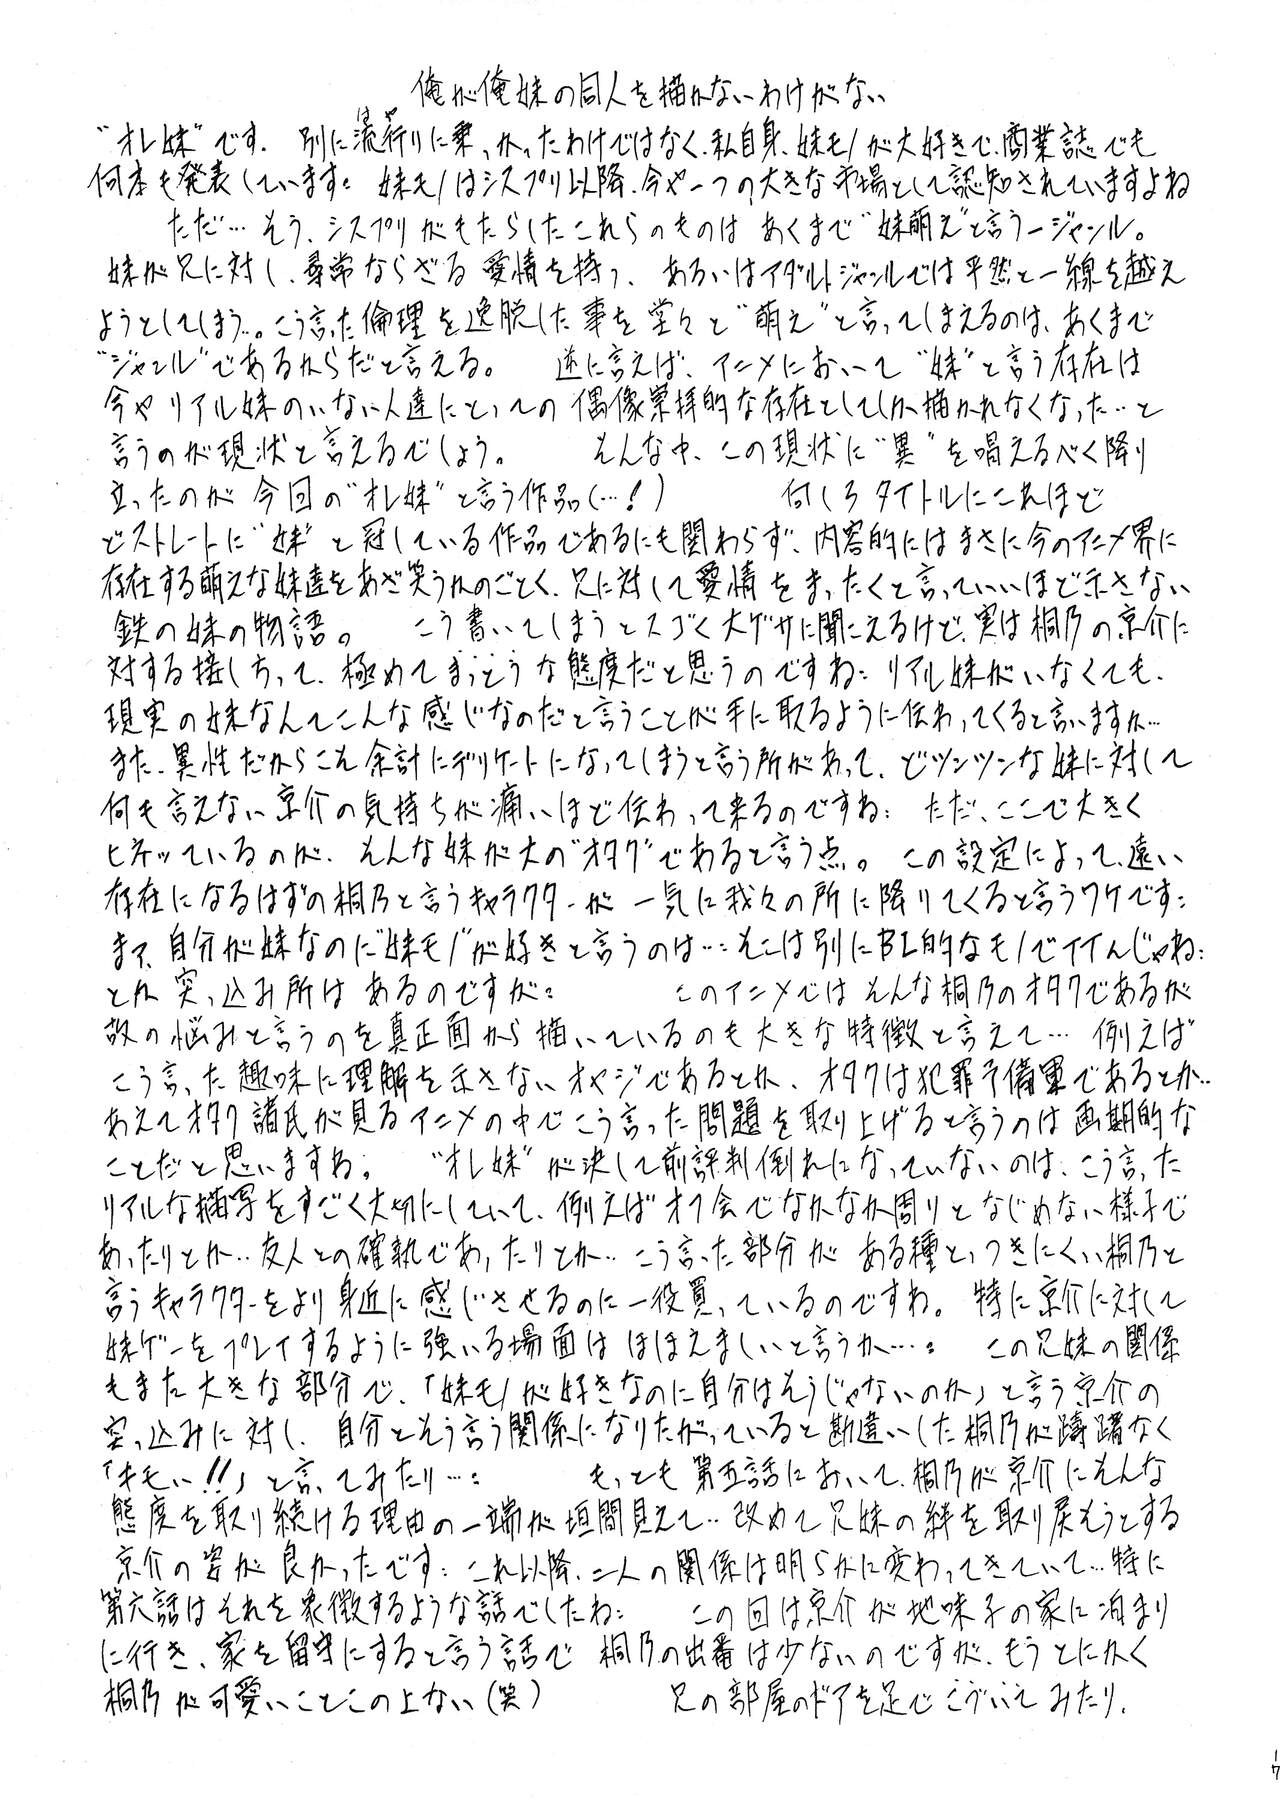 俺が俺妹の同人を描かないわけがない
"オレ妹"です. 別に流行りに乗っかったわけではなく、私自身、妹モノが大好きで、商業誌でも
はや
何本も発表しています: 妹モノはシスプリ以降、今や一つの大きな市場として認知されていますよね
ただ… そう、シスプリがもたらしたこれらのものは あくまで"妹萌え"と言う一ジャンル。
妹が兄に対し、尋常ならざる愛情を持つ、 あるいはアダルトジャンルでは平然と一線を越え
ようとしてしまう…。こう言った倫理を逸脱した事を堂々と"萌え"と言ってしまえるのは、あくまで
"ジャンル"であるからだと言える。 逆に言えば、アニメにおいて"妹"と言う存在は
今やリアル妹のいない人達にとっての偶像崇拝的な存在としてしか描かれなくなった… と
言うのが現状と言えるでしょう。 そんな中、この現状に"異"を唱えるべく降り
立ったのが 今回の"オレ妹"と言う作品(…!) 何しろタイトルにこれほど
どストレートに"妹"と冠している作品であるにも関わらず、内容的にはまさに今のアニメ界に
存在する萌えな妹達をあざ笑うかのごとく、兄に対して愛情をまったくと言っていいほど示さない
鉄の妹の物語。 こう書いてしまうとスゴく大ゲサに聞こえるけど、実は桐乃の京介に
対する接し方って、極めてまっとうな態度だと思うのですね: リアル妹がいなくても、
現実の妹なんてこんな感じなのだと言うことが手に取るように伝わってくると言いますか…
また、異性だからこそ余計にデリケートになってしまうと言う所があって、どツンツンな妹に対して
何も言えない京介の気持ちが痛いほど伝わって来るのですね: ただ、ここで大きく
ヒネッているのが、そんな妹が大の"オタク"であると言う点。この設定によって、遠い
存在になるはずの桐乃と言うキャラクターが 一気に我々の所に降りてくると言うワケです:
まァ、自分が妹なのに"妹モノ"が好きと言うのは…: そこは別にBL的なモノでイイんじゃね:
とか 突っ込み所は あるのですが: このアニメではそんな桐乃のオタクであるが
故の悩みと言うのを真正面から描いているのも大きな特徴と言えて… 例えば
こう言った趣味に理解を示さないオヤジであるとか、オタクは犯罪予備軍であるとか…
あえてオタク諸氏が見るアニメの中でこう言った問題を取り上げると言うのは画期的な
ことだと思いますね。 "オレ妹"が決して前評判倒れになっていないのは、こう言った
リアルな描写をすごく大切にしていて、例えばオフ会でなかなか周りとなじめない様子で
あったりとか…友人との確執であったりとか… こう言った部分がある種とっつきにくい桐乃と
言うキャラクターをより身近に感じさせるのに一役買っているのですね。特に京介に対して
妹ゲーをプレイするように強いる場面は ほほえましいと言うか…: この兄妹の関係
もまた大きな部分で、「妹モノが好きなのに自分はそうじゃないのか」と言う京介の
突っ込みに対し、自分とそう言う関係になりたがっていると勘違いした桐乃が躊躇なく
「キモい!!」と言ってみたり…: もっとも 第五話において、桐乃が京介にそんな
態度を取り続ける理由の一端が垣間見えて… 改めて兄妹の絆を取り戻そうとする
京介の姿が良かったです: これ以降、二人の関係は明らかに変わってきていて…特に
第六話はそれを象徴するような話でしたね: この回は京介が地味子の家に泊まり
に行き、家を留守にすると言う話で 桐乃の出番は少ないのですが、もうとにかく
桐乃が可愛いことこの上ない(笑) 兄の部屋のドアを足でこづいてみたり、
17